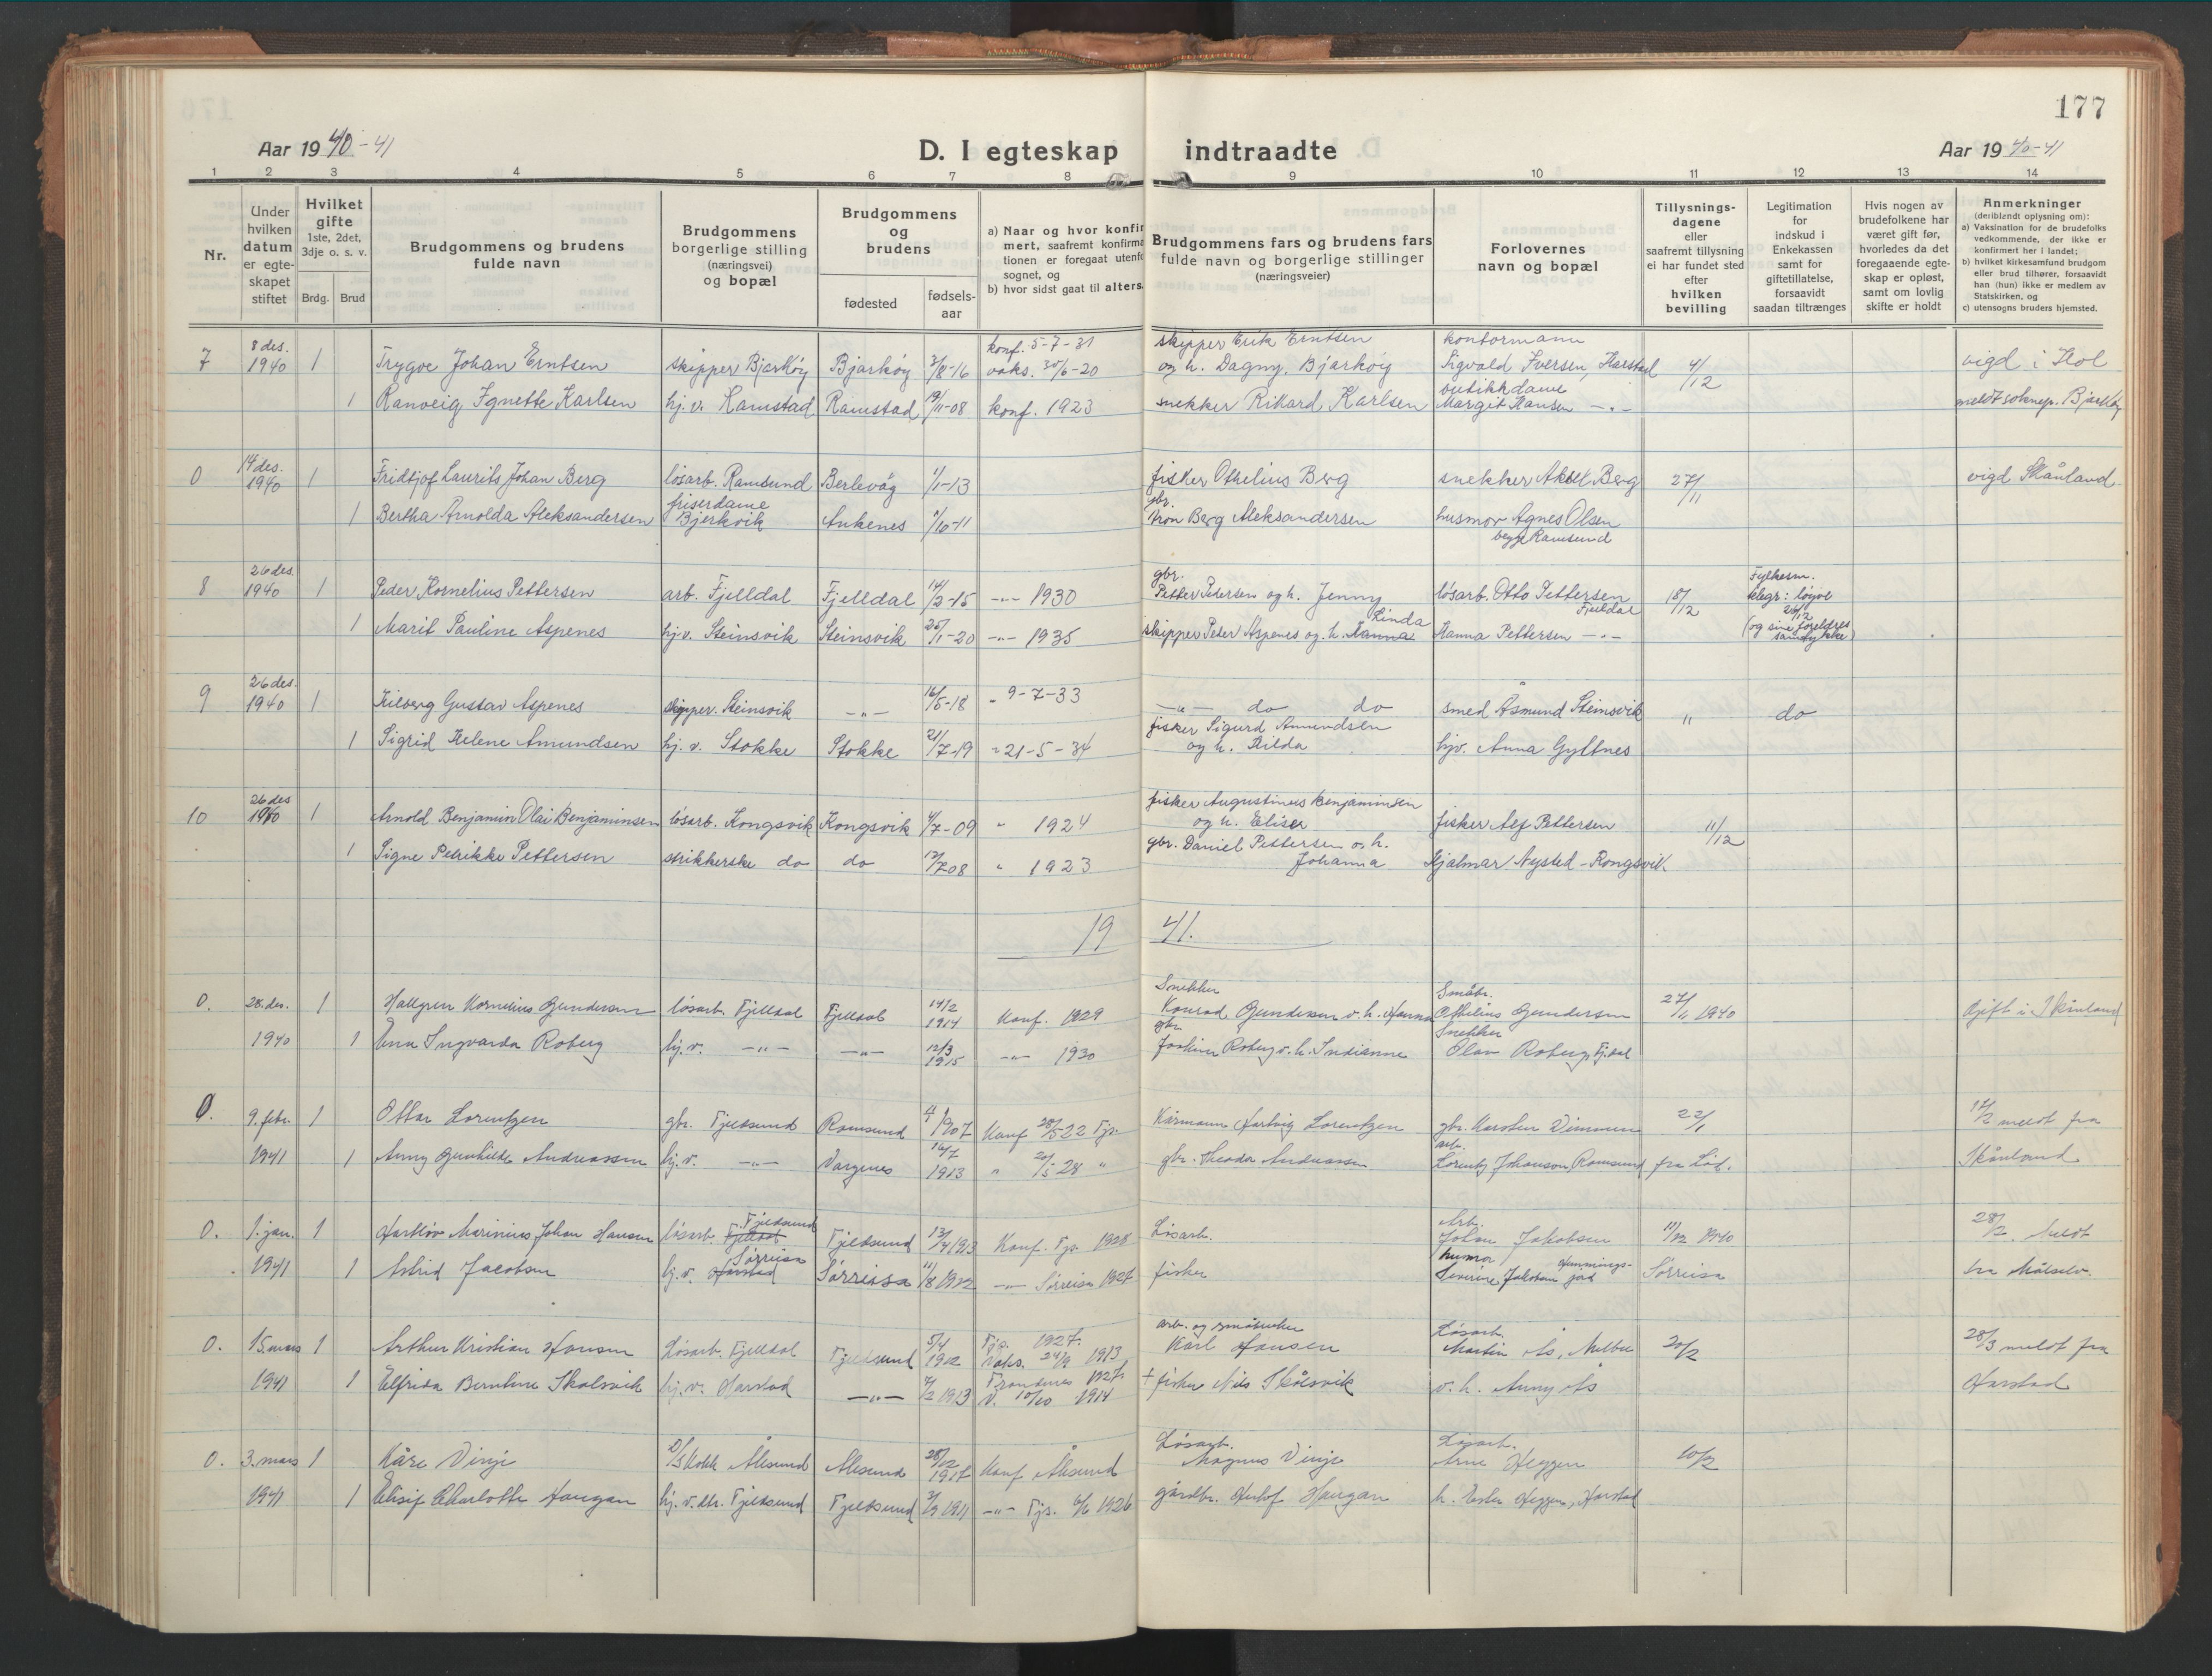 177
Aar 1940-41
D. I egteskap indtraadte
Aar 1940-41
1 2 3 4 5 6 7 8 9 10 11 12 13 14
Nr.
Under hvilken datum er egte-skapet stiftet
Hvilket gifte 1ste, 2det, 3dje o. s. v.
Brdg. Brud
Brudgommens og brudens fulde navn
Brudgommens borgerlige stilling (næringsvei) og bopæl
Brudgommens og brudens
fødested
fødsels-aar
a) Naar og hvor konfir
mert, saafremt konfirma
tionen er foregaat utenfo
sognet, og
b) hvor sidst gaat til alters.
Brudgommens fars og brudens fars fulde navn og borgerlige stillinger (næringsveier)
Forlovernes navn og bopæl
Tillysnings-dagene eller saafremt tillysning ei har fundet sted efter hvilken bevilling
Legitimation for indskud i Enkekassen samt for giftetillatelse, forsaavidt saadan tiltrænges
Hvis nogen av brudefolkene har været gift før, hvorledes da det foregaaende egte-skap er opløst, samt om lovlig skifte er holdt
Anmerkninger (deriblandt oplysning om):
a) Vaksination for de brudefolks vedkommende, der ikke er konfirmert her i landet;
b) hvilket kirkesamfund brudgom eller brud tilhører, forsaavidt han (hun) ikke er medlem av Statskirken, og
c) utensogns bruders hjemsted.
7 8 des. 1940 1 Trygve Johan Erntsen skipper Bjarkøy Bjarkøy 3/8-16 konf. 5-7-31 vaks. 30/6-20 skipper Erik Erntsen og h. Dagny, Bjarkøy kontormann Sigvald Iversen, Harstad 4/12 vigd i Hol
1 Ranveig Agnette Karlsen hj. v. Ramstad Ramstad 19/11-08 konf. 1923 snekker Rikard Karlsen butikkdame Margit Hansen -"- meldt soknepr. Bjarkøy
0 14 des. 1940 1 Fridtjof Laurits Johan Berg løsarb. Ramsund Berlevåg 1/1-13 fisker Othelius Berg snekker Aksel Berg 27/11 vigd Skånland
1 Bertha Arnolda Aleksandersen friserdame Bjerkvik Ankenes 1/10-11 gbr. Aron Berg Aleksandersen husmor Agnes Olsen begge Ramsund
8 26 des. 1940 1 Peder Kornelius Pettersen arb. Fjelldal Fjelldal 14/2-15 -"- 1930 gbr. Petter Pedersen og h. Jenny løsarb. Otto Pettersen Fjelldal 18/12 Fylkesm. telegr: løyve 24/12
1 Marit Pauline Aspenes hj.v. Steinsvik Steinsvik 25/11-20 -"- 1935 skipper Peder Aspenes og h. Hanna Linda Hanna Pettersen -"- (og sine foreldres samtykke)
9 26 des. 1940 1 Hilberg Gustav Aspenes skipper. Steinsvik -"- 16/5-18 - 9-7-33 -"- do do smed Åsmund Steinsvik " do
1 Sigrid Helene Amundsen hj. v. Stokke Stokke 21/7-19 " 21-5-34 fisker Sigurd Amundsen og h. Hilda hjv. Anna Gyltnes
10 26 des 1940 1 Arnold Benjamin Olai Benjaminsen løsarb. Kongsvik Kongsvik 4/7-09 " 1924 fisker Augustinus Benjaminsen og h. Eliser fisker Alf Pettersen 11/12
1 Signe Petrikke Pettersen strikkerske do do 12/7-08 " 1923 gbr. Daniel Pettersen o. h. Johanna Hjalmar Nysted - Kongsvik.
19 41.
0. 28. des. 1 Hallgren Kornelius Gundersen løsarb. Fjelldal Fjelldal 14/2 1914 Konf. 1929 Snekker Konrad Gundersen o. h. Hanna Småbr. Othelius Gundersen 27/11 1940 Gift i Skånland
1940 1 Enna Ingvarda Roberg hj.v. -"- -"- 12/3 1915 -"- 1930 gbr Joakim Roberg o. h. Indianne Snekker Olav Roberg, Fj.dal
0. 9. febr. 1 Ottar Lorentzen gbr. Fjeldsund Ramsund 1907 Konf 28/5 22 Fjs. Hartvig Lorentzen gbr. Karsten 22/1 12/2 meldt fra
1941 1 Anny Gunhilde Andreassen hj.v. -"- Vargenes 16/7 1913 " 20/5 28 " gbr. Theodor Andreassen arb. Lorentz Johansen, Ramsund fra Lød. Skånland
0. 1. jan. 1 Hartløv Marinius Johan Hansen løsarb. Fjelldal Fjeldsund Fjeldsund 13/4 1913 Konf. Fjs. 1928 Løsarb. Arb. Johan Jakobsen 11/12 1940 28/2. Meldt
1941 1 Astrid Jacobsen hj. v. Harstad Sørreisa Sørreisa 11/8 1912 -"- Sørreisa 1927 fisker husmor Severine Jakobsen Hemmings-jord Sørreisa fra Målselv.
0. 15. mars 1 Arthur Kristian Hansen Løsarb. Fjelldal Fjeldsund 5/4 1912 Fjs. 1927. Vaks. 24/9 1913 arb. og småbruker Karl Hansen Løsarb. Martin Ås, Melbu 20/2 28/3 meldt fra
1941 1 Elfrida Berntine Skolsvik hj. v. Harstad -"- 4/2 1913 Trondenes 1927. V. 10/10 1914 + fisker Nils Skålsvik o. h. Anny Ås Harstad
0. 3. mars 1 Kåre Vinje D/S kokk Ålesund Ålesund 28/12 1917 Konf Ålesund Løsarb. Magnus Vinje Løsarb. Arne Heggen 10/2
1941 1 Elisif Charlotte Haugan hj. v. dtr. Fjeldsund Fjeldsund 2/9 1911 -"- Fjs. 6/6 1926 gårdbr. Herlof Haugan h. Ester Heggen, Harstad